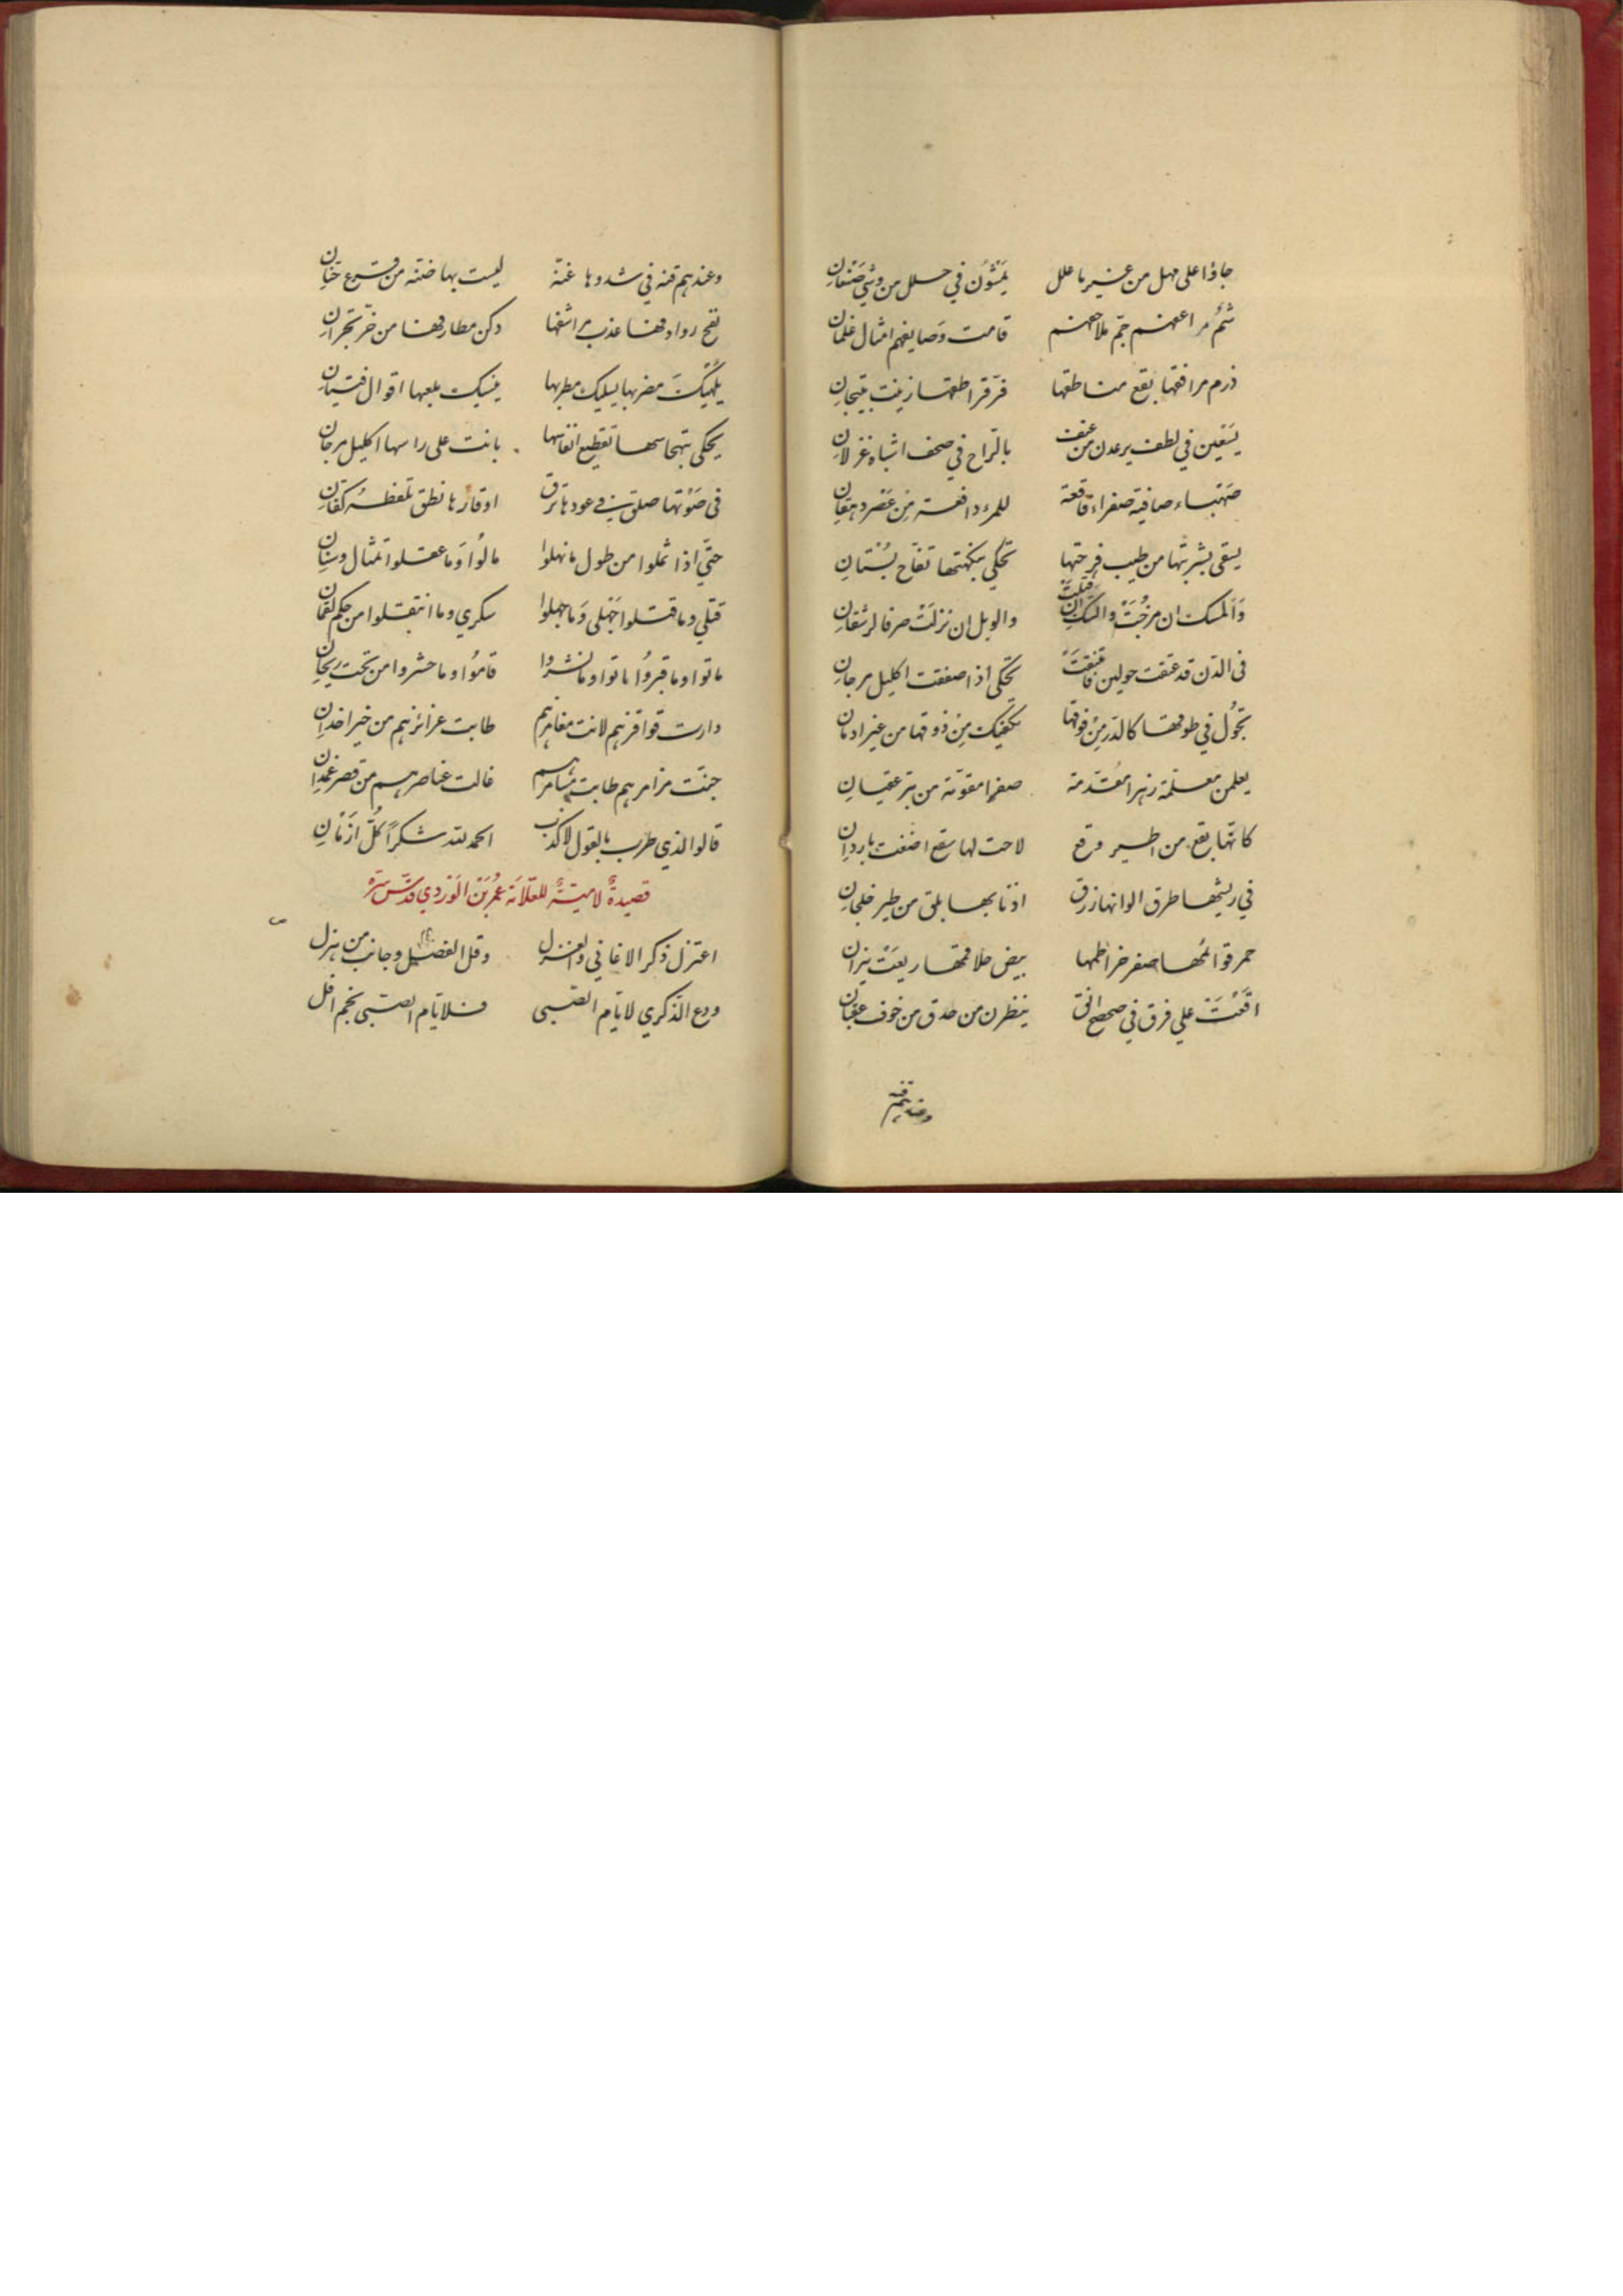 جاؤا على مهل من غير ما علل يمشون في حلل من وشي صنعان
شم مراعهم جم ملاحهم قامت وصايفهم امثال غلمان
درم مرافقها بقع مناطقها قراطقها زينت بتيجان
يسقين في لطف يرعدن من عنف بالراح في صحف اشباه غزلان
صهباء صافية صفراء فاقعة للمرء دافعة من عصر دهقان
يسقى بشربتها من طيب فرحتها تحكي بنكهتها تفاح بستان
والمسك ان مزجت والمسك ان قتلت والوبل ان نزلت صرفا لرشفان
في الدن قد عتقت حولين تحكي اذا صفقت اكليل مرجان
تجول في طوقها كالدر من فوقها يكفيك من ذوقها من غير ادمان
يعلمن معلمة زهرا مقدمة صفرا مقومة من تبر عقيان
كانها بقع من اطير وقع لاحت لها سقع اضفت باردان
في ريشها طرق الوانها زرق اذنابها بلق من طير خلجان
حمر قوائمها صفر خراطمها بيض حلاقمها ريعت بنزان
اقعت على فرق في صحصح انق ينظرن من حدق من خوف عقبان
وعندهم قنة
وعندهم قنه في شدوها غنة ليست بها ضنه من قرع ختان
نفح روادفها عذب مراشفها دكن مطارفها من خز نجران
يلهيك مضربها يسليك مطربها ينسيك ملعبها اقوال فتيان
يحكي بتهجاسها تقطيع انفاسها بانت على راسها اكليل مرجان
في صوتها صلق في عودها نزق اوقارها نطق تلفظه كفان
حتى اذا ثملوا من طول ما نهلوا مالوا وما عقلوا تمثال وسنان
قتلي وما قتلوا جهلى وما جهلوا سكري وما انتقلوا من حكم لقمان
ماتوا وما قبروا ماتوا وما نشروا قاموا وما حشروا من تحت ريحان
دارت قواقزهم لانت مغامزهم طابت غرائزهم من خير اخدان
جنت مزامرهم طابت مسامرهم غالت عناصرهم من قصر غمدان
قالوا الذي طرب بالقول لا كذب الحمد لله شكرا كل ازمان
قصيدة لامية للعلامة عمر بن الوردي قدس سره
اعتزل ذكر الاغاني والغزل وقل الفضيل وجانب من هزل
ودع الذكري لايام الصبى فلايام الصبى نجم افل